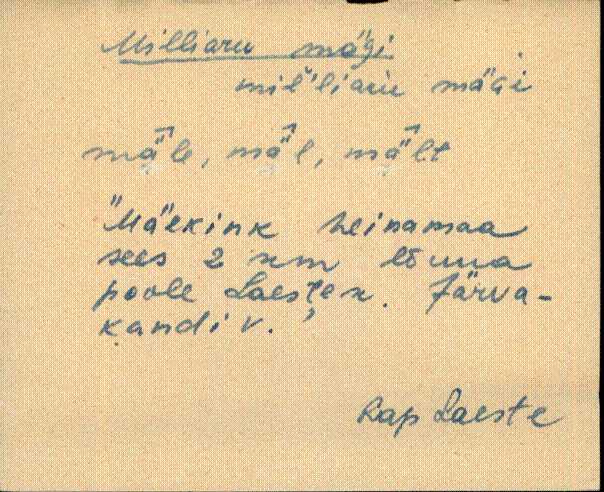 Milliaru mägi
mil'liaru mäGi
mä̂le, mä̂l, mä̂lt
"Mäekink heinamaa
sees 2 km lõuna
poole Laestest. Järva-
kandi v.
Rap Laeste